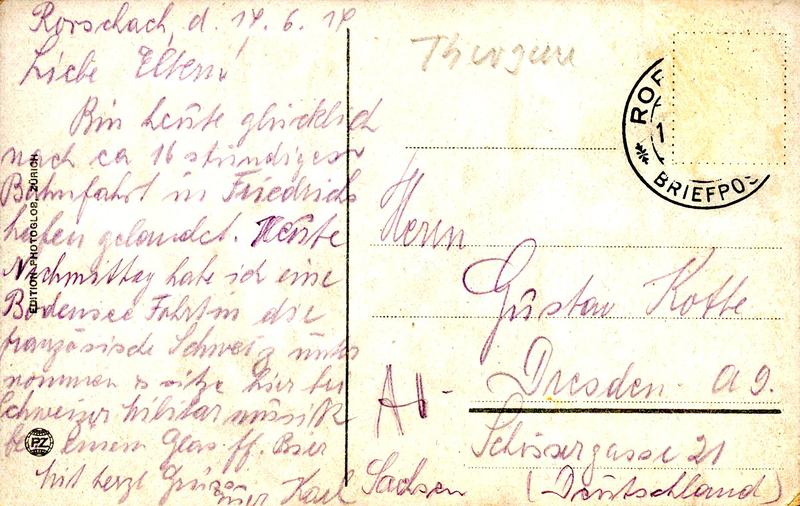 Rorschach, d. 14. 6. 14
Liebe Eltern!
Bin heute glücklich
nach ca 16 stündiger
Bahnfahrt in Friedrichs
hafen gelandet. Heute
Nachmittag habe ich eine
Bodensee Fahrt in die
französische Schweiz unter
nommen & sitze hier bei
Schweizer Militärmusik
bei einem Glas ff. Bier
Mit herzl Grüßen
euer Karl
EDITION PHOTOGLOB, ZÜRICH
PZ
BRIEFPOS
Herrn
Gustav Kotte
Dresden A 9.
Schössergasse 21
Sachsen (Deutschland)